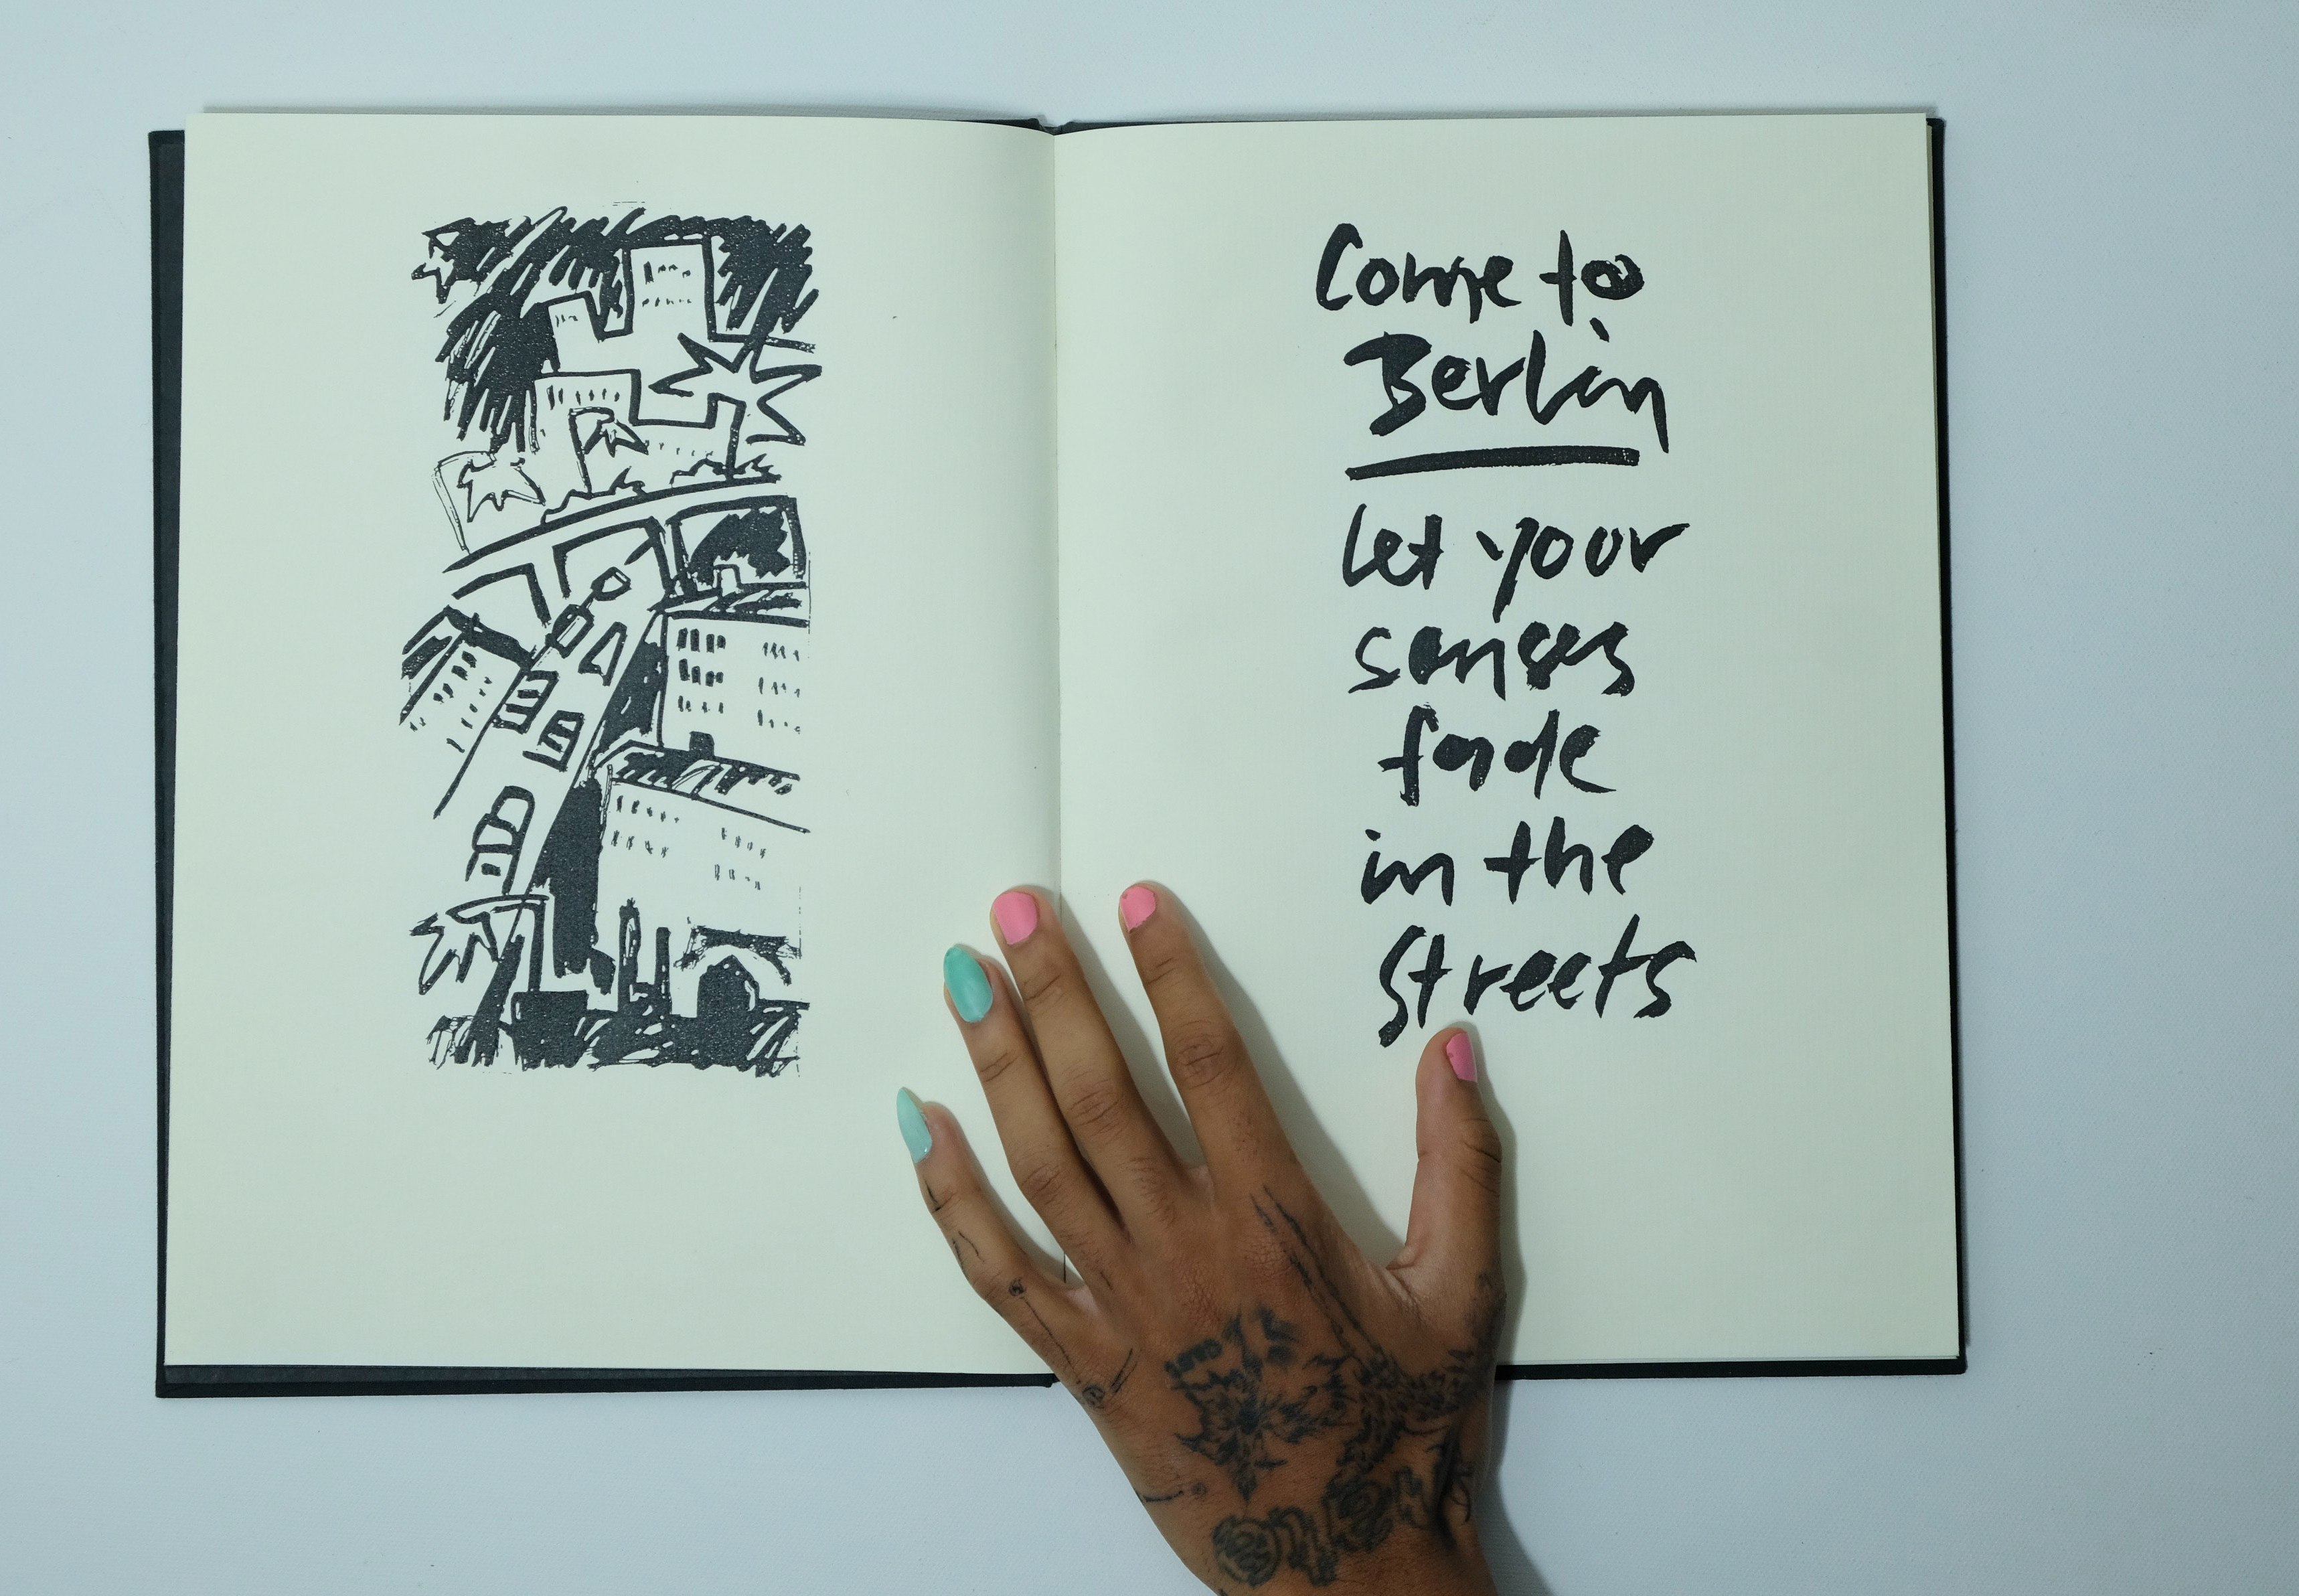 Come to
Berlin
let your
senses
fade
in the
Streets